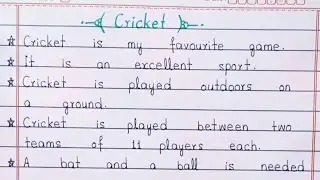 Cricket
Cricket is my favourite game.
It is an excellent sport.
Cricket is played outdoors on
a ground.
Cricket is played between two
teams of 11 players each.
A bat and a ball is needed